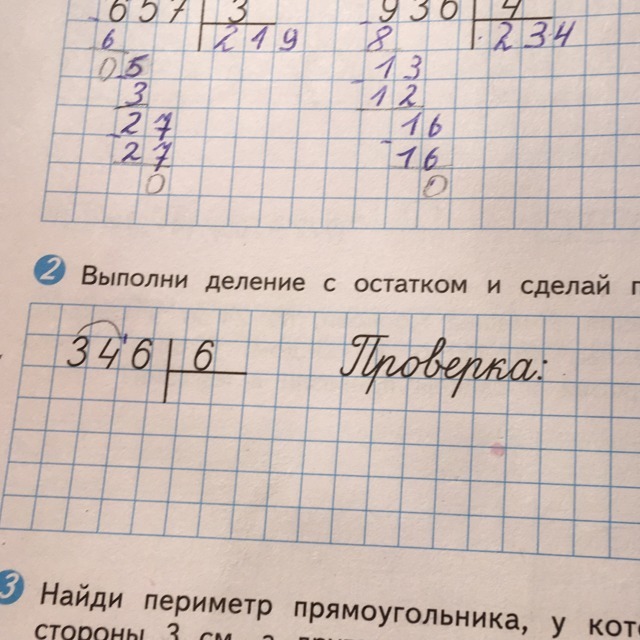 657 3
6 219
05
3
27
27
0
936 4
8 234
13
12
16
16
0
2 Выполни деление с остатком и сделай
346 6 Проверка:
3 Найди периметр прямоугольника, у
стороны 3 см, а